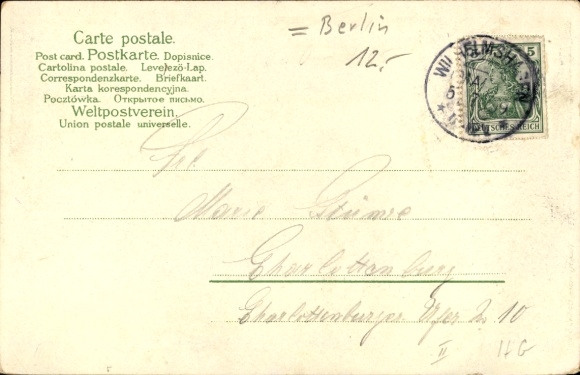 = Berlin
12.-
Carte postale.
Post card. Postkarte. Dopisnice.
Cartolina postale. Levelező-Lap.
Correspondenzkarte. Briefkaart.
Karta korespondencyjna.
Pocztówka. Открытое письмо.
Weltpostverein.
Union postale universelle.
WILHELMSHAVEN
5
DEUTSCHES REICH
Marie
Charlottenburg
Charlottenburger Ufer 10
II